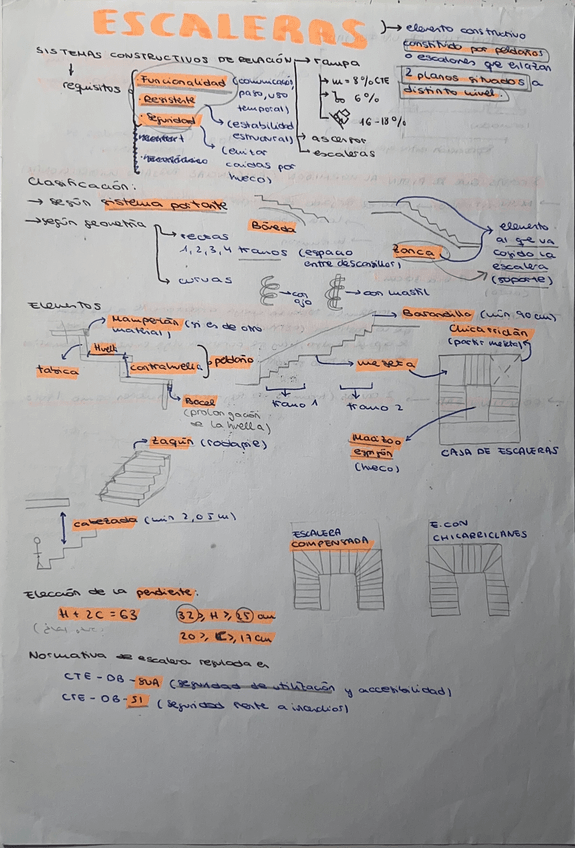 ESCALERAS
elemento constructivo
constituido por peldaños
o escalones qe enlazan
2 planos situados a
distinto nivel.
SISTEMAS CONSTRUCTIVOS DE RELACIÓN → rampa
requisitos
Funcionalidad (comunicación, paso, uso temporal)
Resistente (estabilidad estructural)
Seguridad (evitar caídas por hueco)
m = 8% CTE
6%
16-18%
ascensor
escaleras
Clasificación:
→ según sistema portante
Bóveda
Zanca
elemento
al qe va
cogido la
escalera
(soporte)
→ según geometría
rectas
1, 2, 3, 4 tramos (espacio
entre descansillos)
curvas
con ojo
con mastil
Elementos
Mamperlán (si es de otro
material)
Huella
contrahuella
peldaño
fabrica
Bocel
(prolongación
de la huella)
Barandilla (min 90 cm)
Chicarriclán
(partir meseta)
meseta
tramo 1
tramo 2
Macizo o
espigón
(hueco)
CAJA DE ESCALERAS
Zaquín (rodapie)
cabezada (min 2,05 m)
ESCALERA
COMPENSADA
E. CON
CHICARRICLANES
Elección de la pendiente:
H + 2C = 63
32 ≥ H ≥ 25 cm
20 ≥ C ≥ 17 cm
Normativa escalera regulada en
CTE - DB - SUA (seguridad de utilización y accesibilidad)
CTE - DB - SI (seguridad frente a incendios)